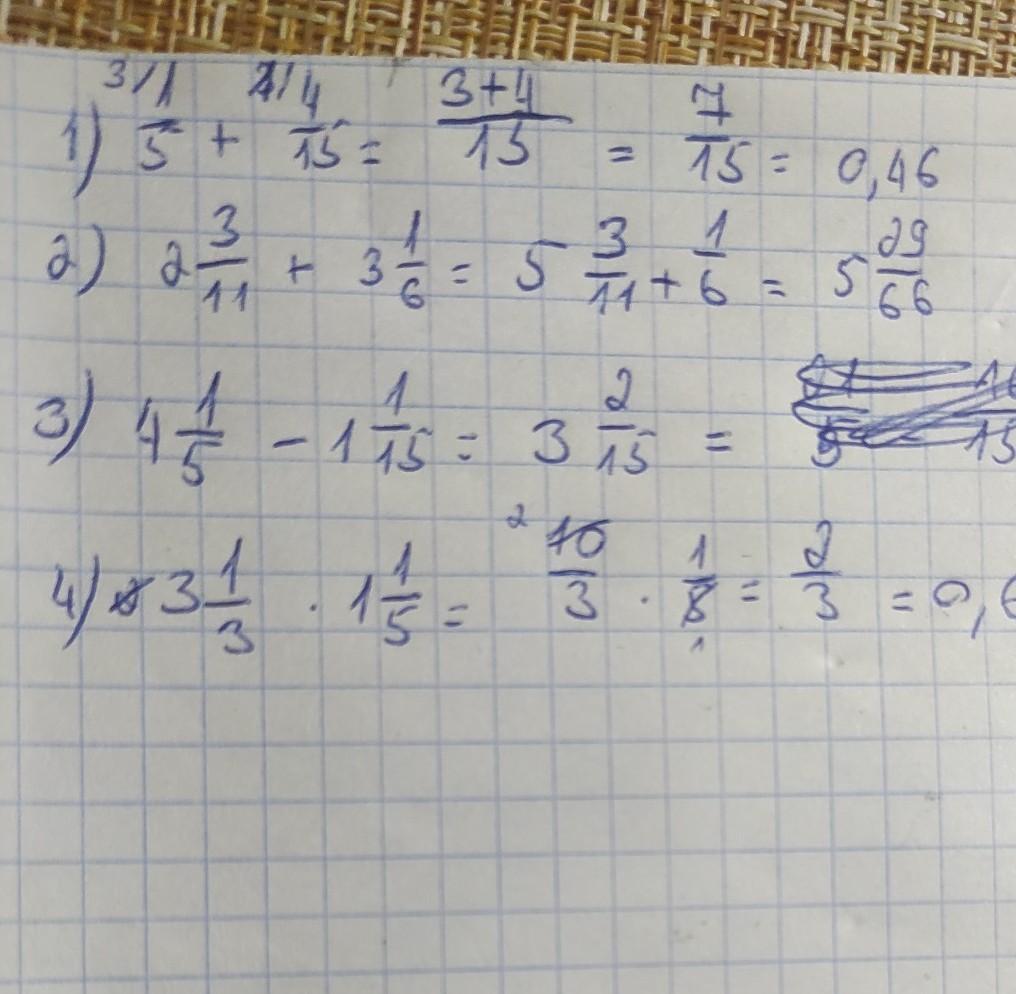 1) 3/ 1/5 + 1/ 4/15 = (3+4)/15 = 7/15 = 0,46
2) 2 3/11 + 3 1/6 = 5 3/11 + 1/6 = 5 29/66
3) 4 1/5 - 1 1/15 = 3 2/15 =
4) 3 1/3 · 1 1/5 = 2 10/3 · 1/5 1 = 2/3 = 0,6